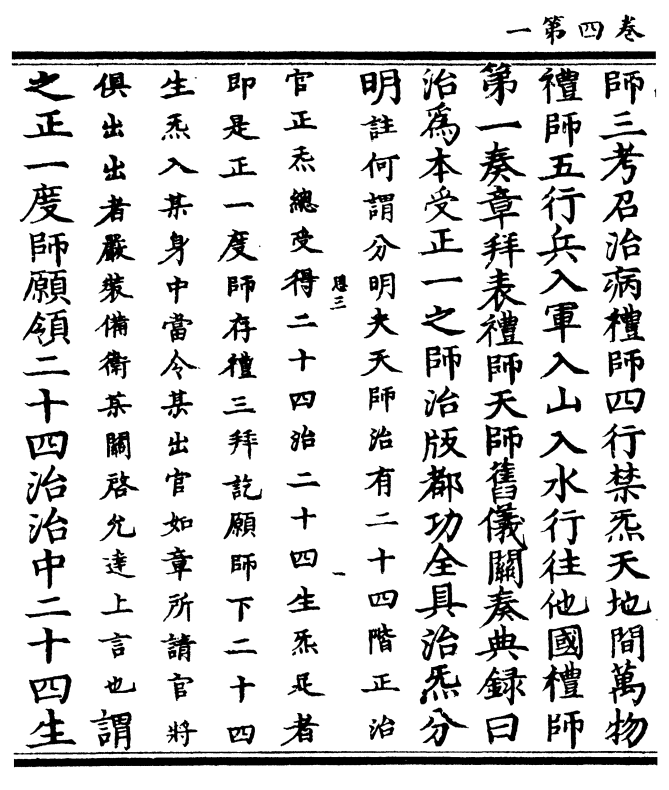 卷四第一
師三考召治病禮師四行禁炁天地間萬物
禮師五行兵入軍入山入水行往他國禮師
第一奏章拜表禮師天師舊儀關奏典録曰
治爲本受正一之師治版都功全具治炁分
明註何謂分明夫天師治有二十四階正治
官正炁總受得二十四治二十四生炁足者
恩三
一
即是正一度師存禮三拜訖願師下二十四
生炁入某身中當令某出官如章所請官將
俱出出者嚴裝備衛某關啓允達上言也謂
之正一度師願領二十四治治中二十四生